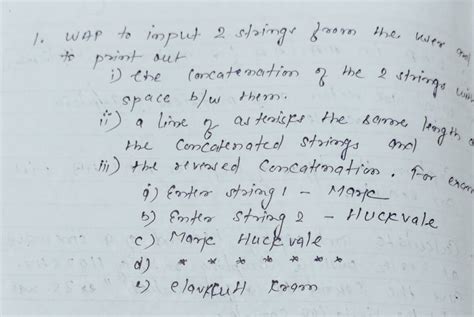 1. WAP to input 2 strings from the user and
to print out
i) the concatenation of the 2 strings with
space b/w them.
ii) a line of asterisks the same length
the concatenated strings and
iii) the reversed concatenation. For exam
a) Enter string 1 - Mark
b) Enter string 2 - Huckvale
c) Mark Huckvale
d) * * * * * * *
e) elavkcuH kram